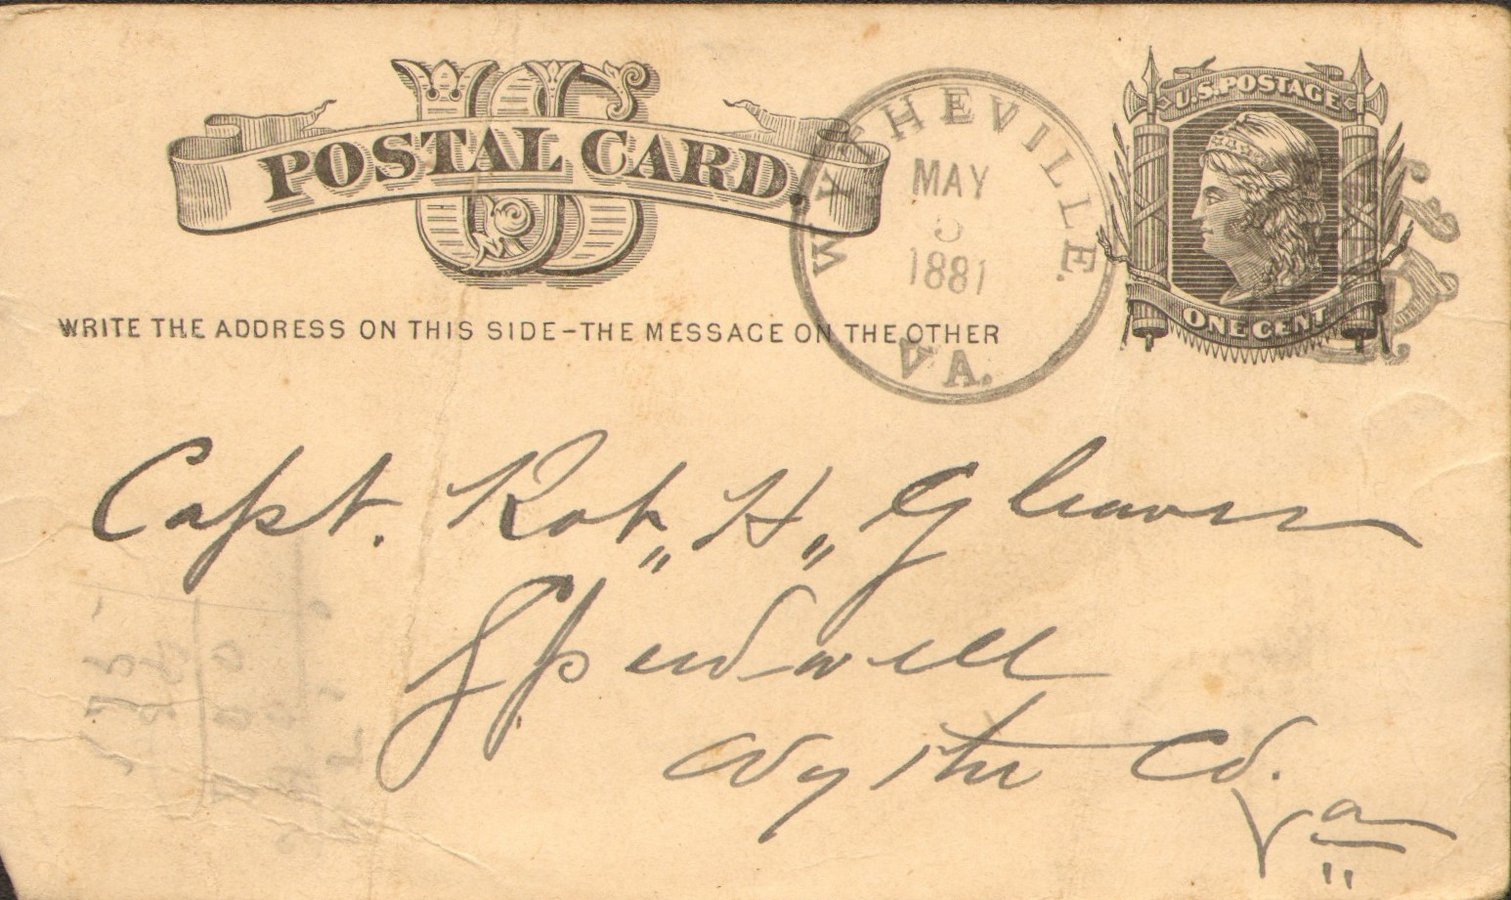 US
POSTAL CARD.
WYTHEVILLE.
MAY
1881
VA.
U.S. POSTAGE
ONE CENT
WRITE THE ADDRESS ON THIS SIDE-THE MESSAGE ON THE OTHER
Capt. Robt,, H,, Gleaves
Speedwell
Wythe Co.
Va